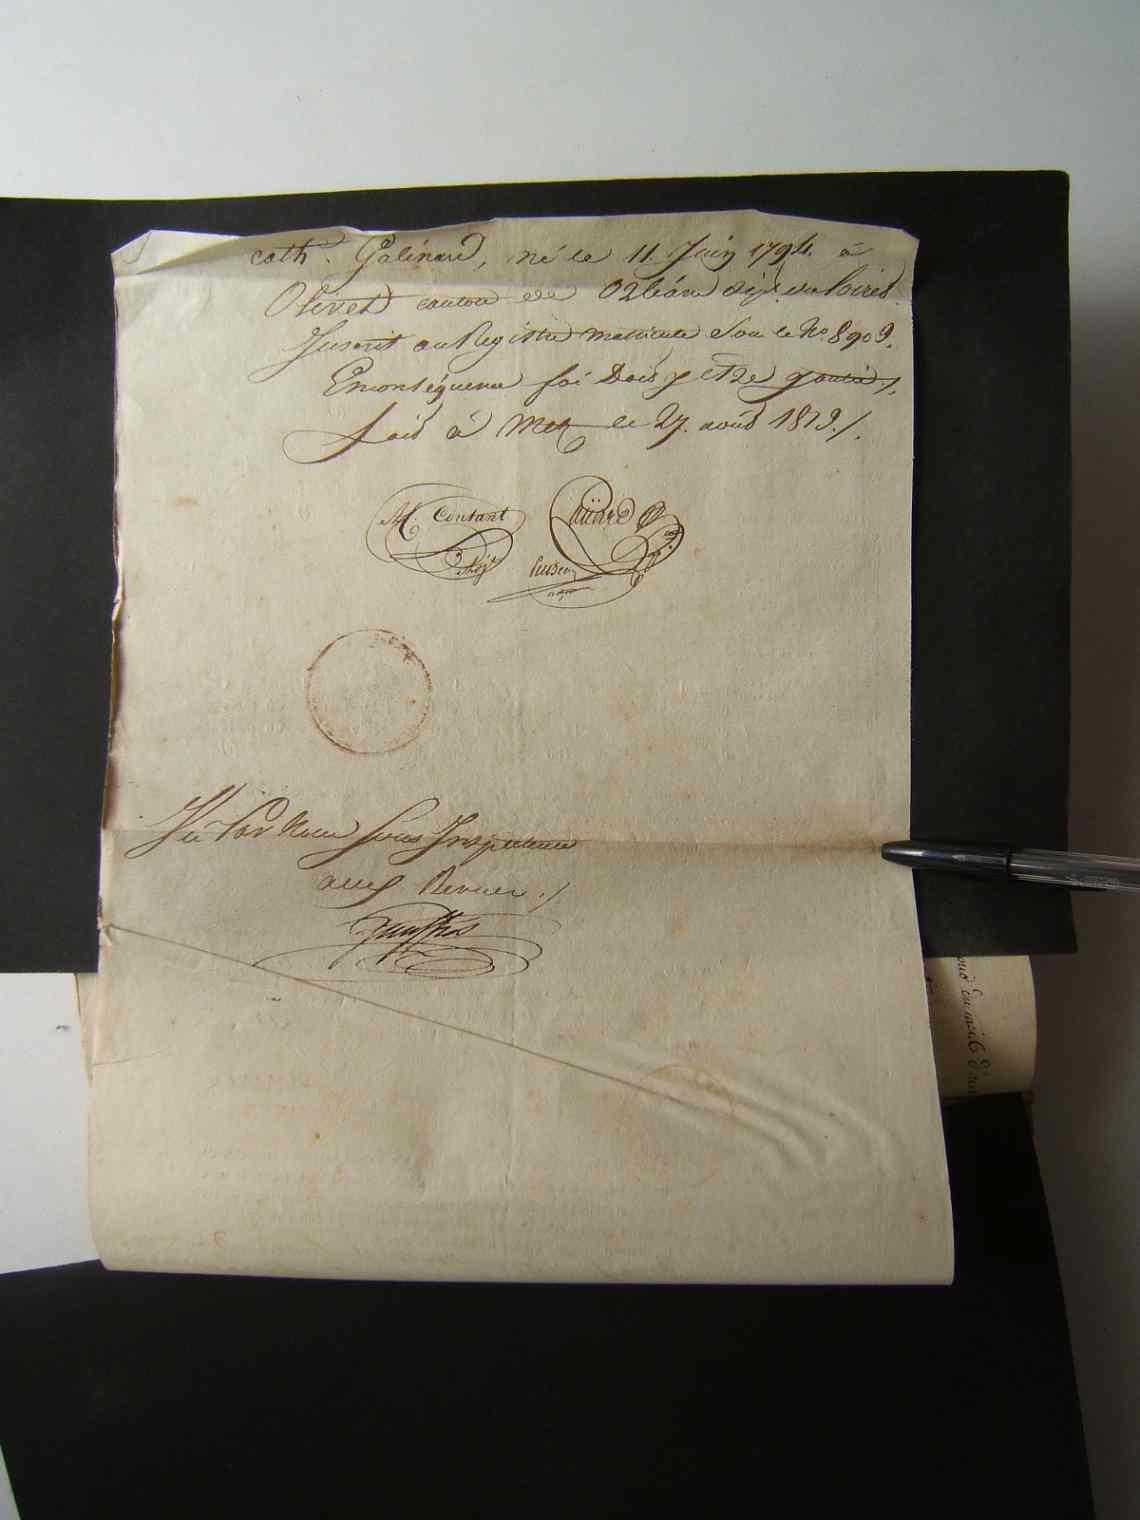 cath. Galinard, né le 11 Juin 1794. à
Olivet canton de Orléans dép. du Loiret
Inscrit au Registre matricule Sous le No. 8909.
En conséquence foi Dois y etre
fait à Metz le 27. août 1813./.
M. Coutant
Huard
Vu Par Nous Sous Inspecteur
aux Revues ./